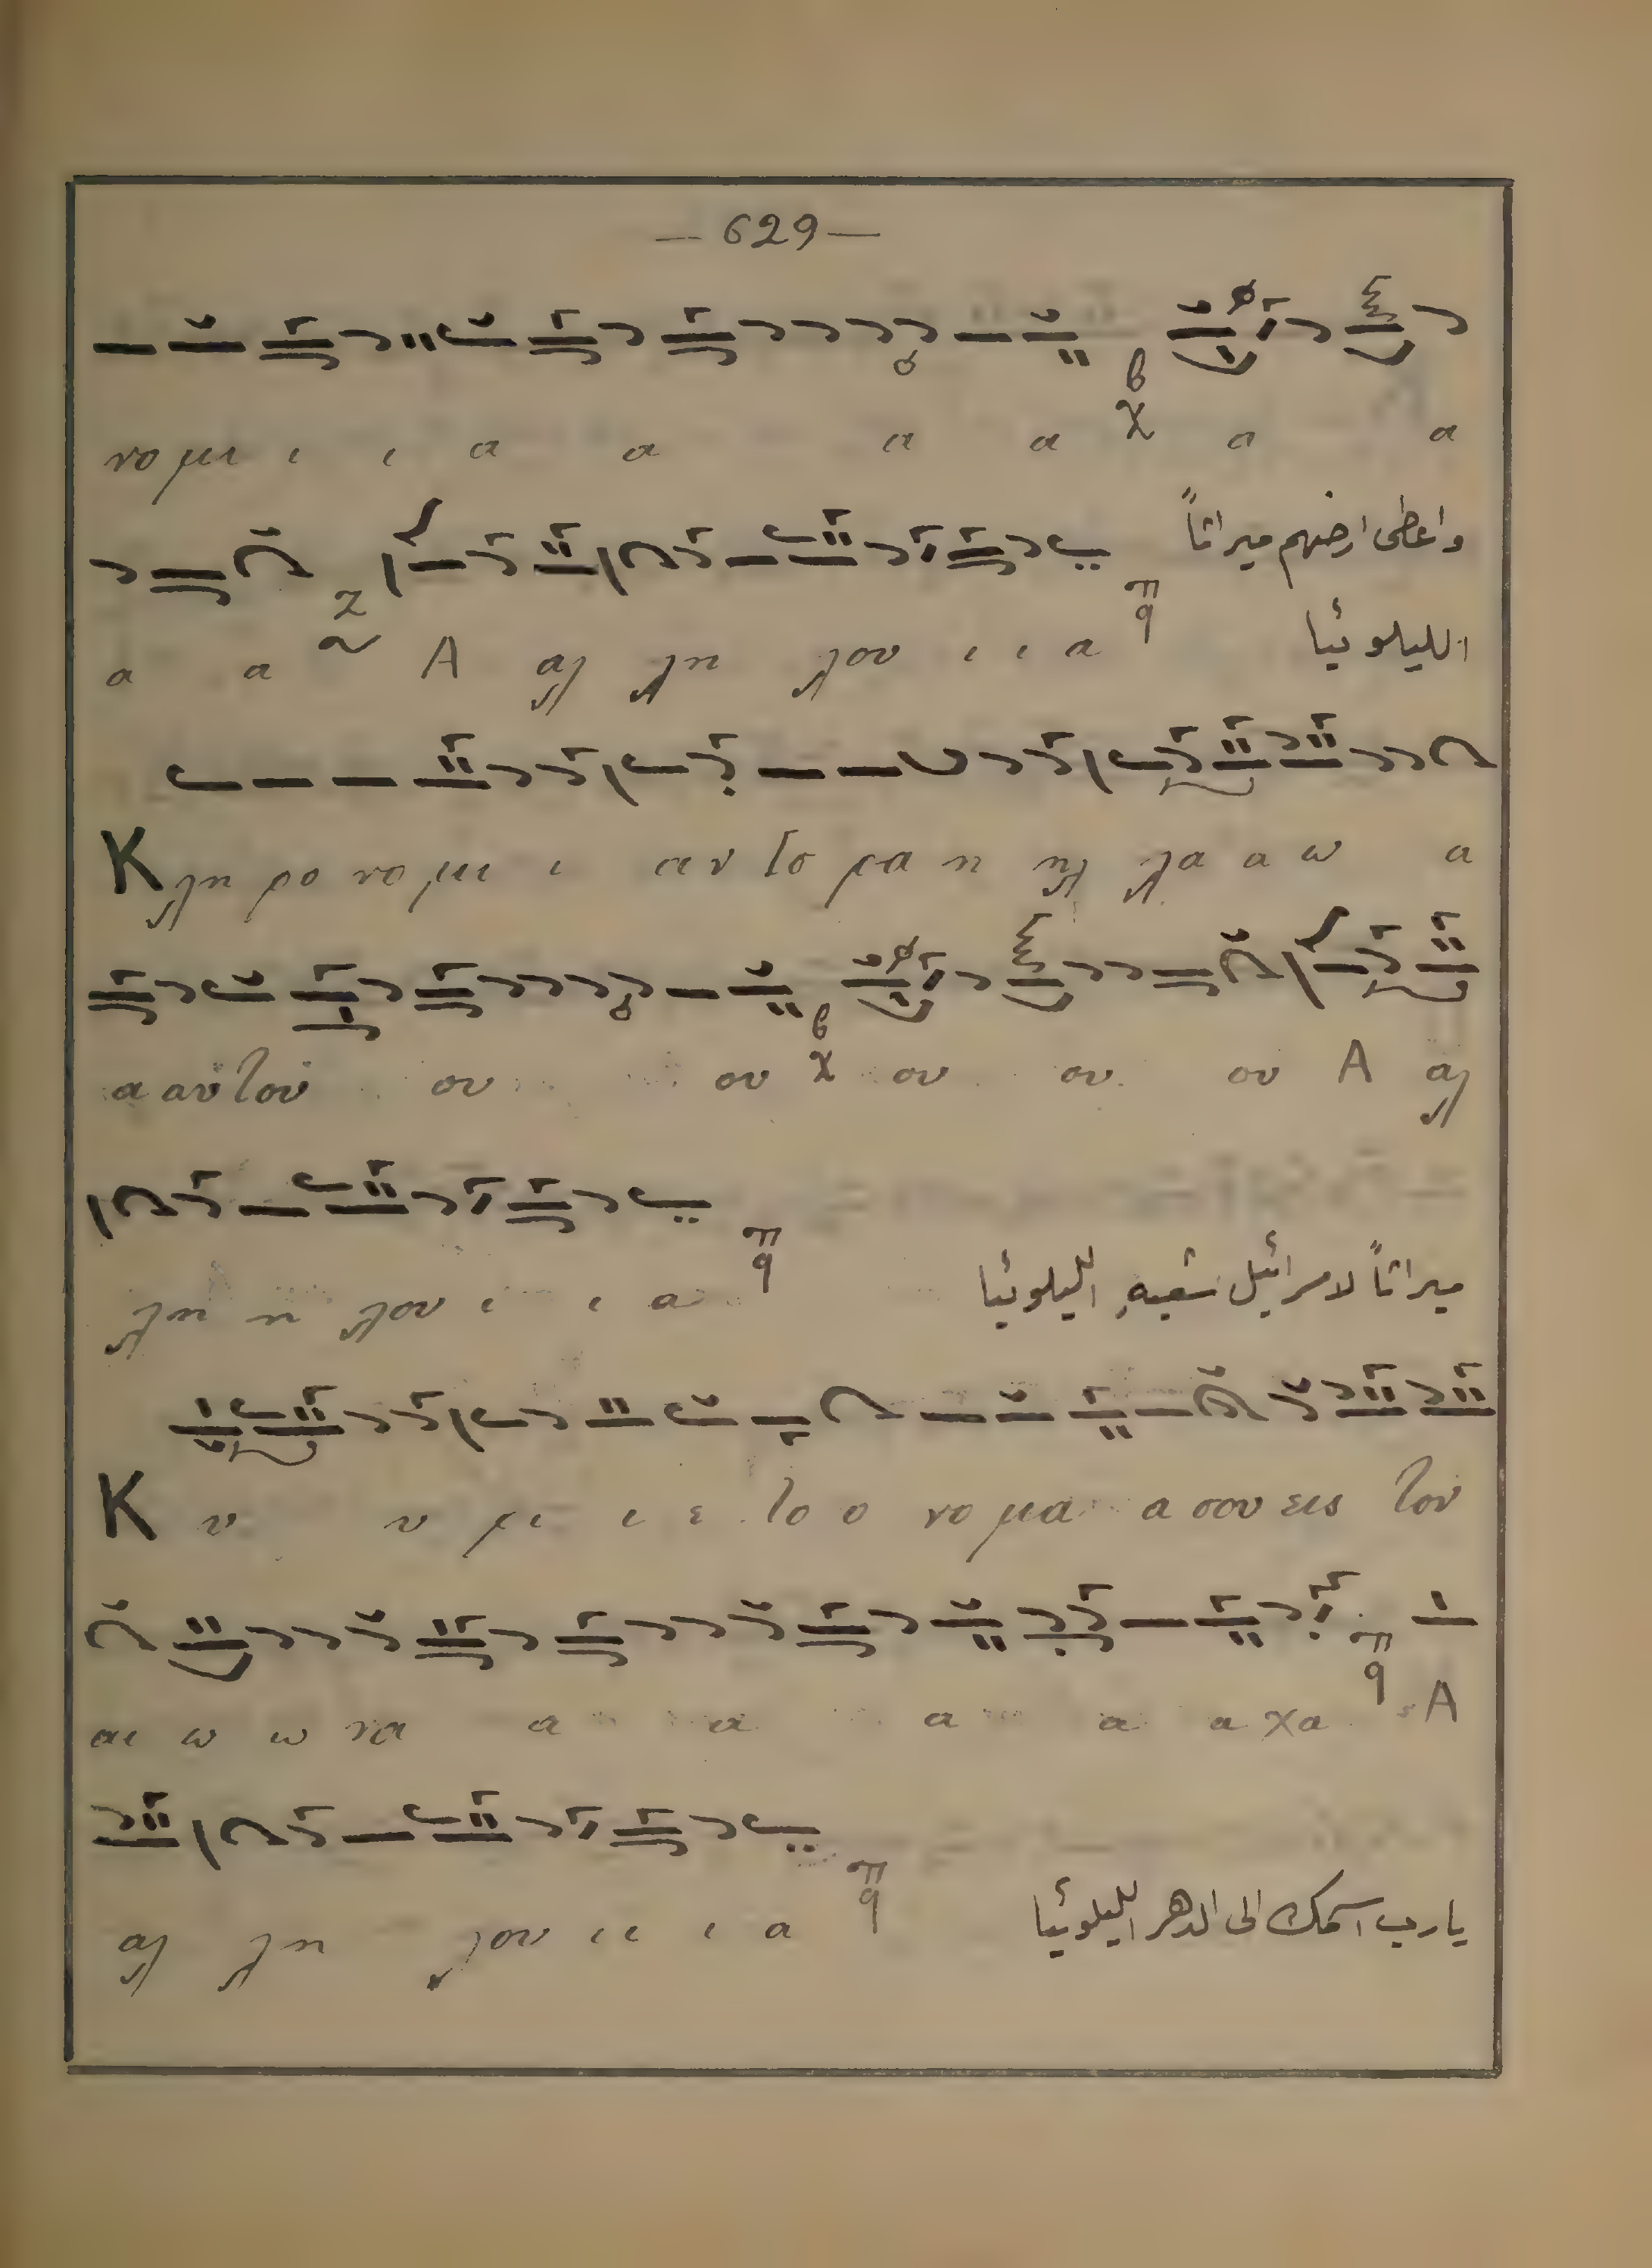 — 629 —
νο μι ι ι α α α α χ α α
واعطى ارضهم ميراثاً
α α Α αλ λη λου ι ι α
الليلوئيا
Κ λη ρο νο μι ι αν το ρα η ηλ λα α ω α
α αυ του ου ου χ ου ου ου Α αλ
λη η λου ι ι α
ميراثاً لاسرائيل شعبهِ الليلوئيا
Κ υ υ ρι ι ε το ο νο μα α σου εις τον
αι ω ω να α α α α α χα Α
αλ λη λου ι ι ι α
يارب اسمك الى الدهر الليلوئيا